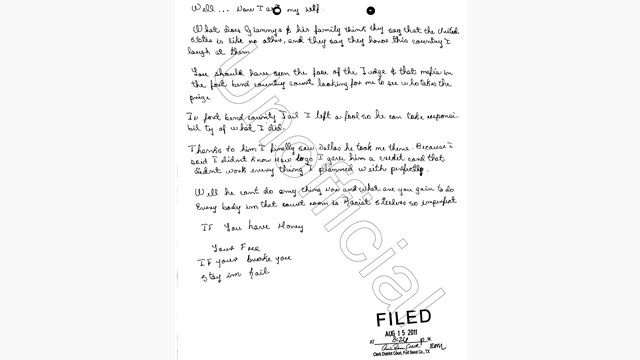 Well... Now I ask my self.
What does Giannys & his family think they say that the United
states is like no other, and they say they honor this country I
laugh at them
You should have seen the face of the Judge & that mafia in
the fort bend country court looking for me to see who takes the
prize
In fort bend county Jail I left a fool so he can take responsi
bility of what I did.
Thanks to him I finally saw Dallas he took me there. Because I
said I didnt know how to go I gave him a credit card that
didnt work every thing I planned with perfectly.
Well he cant do any thing now and what are you gain to do
Every body in that court room is Racist selves so imperfect
IF You have Money
Your Free
IF your broke you
stay in Jail
Unofficial
FILED
AUG 15 2011
AT 3:26 P M.
Clerk District Court, Fort Bend Co., TX